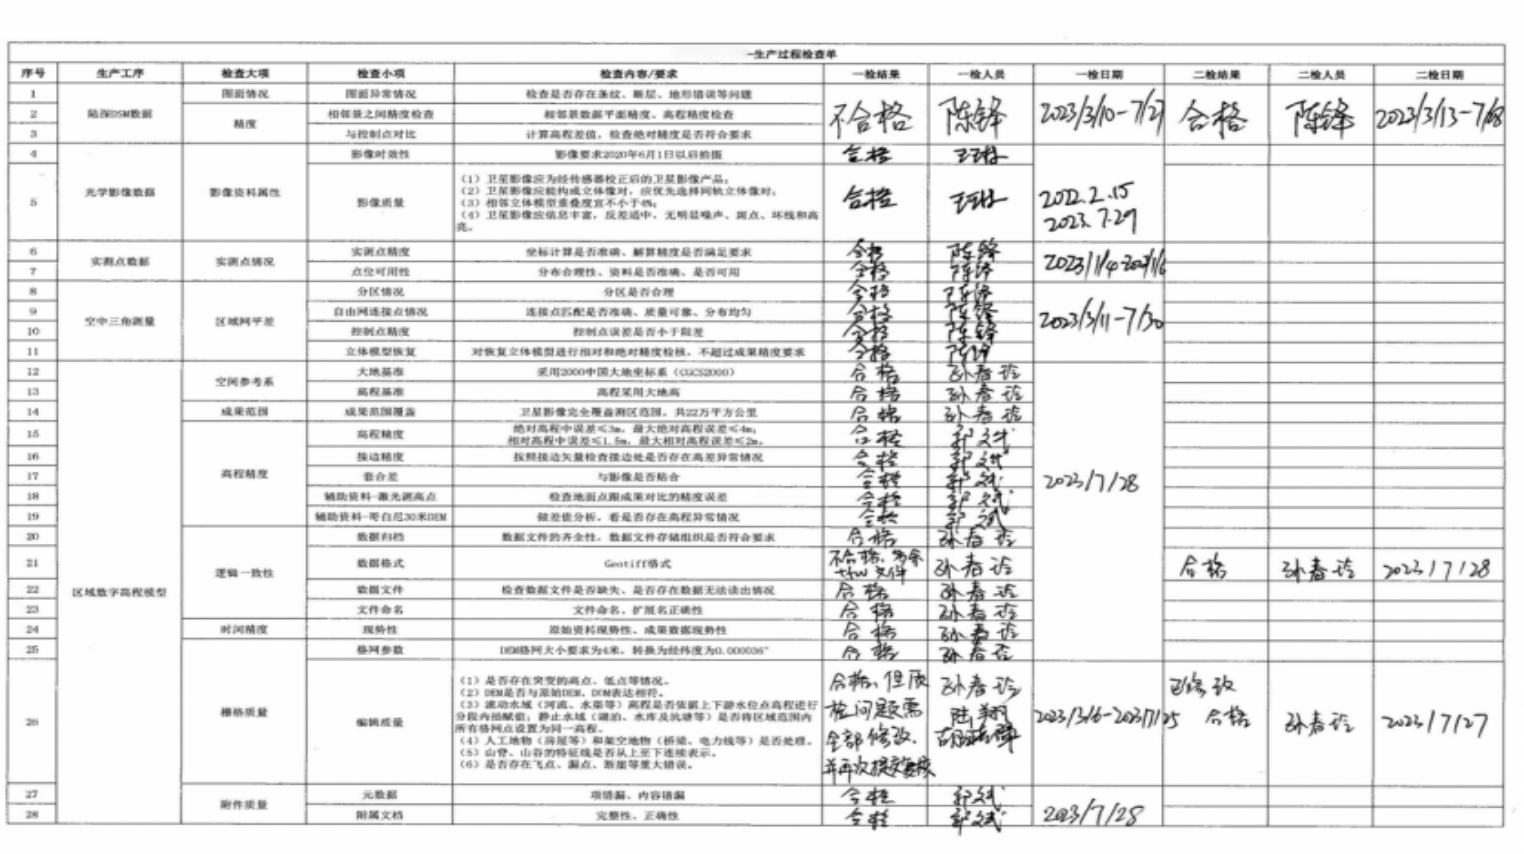 一生产过程检查单
序号 生产工序 检查大项 检查小项 检查内容/要求 一检结果 一检人员 一检日期 二检结果 二检人员 二检日期
1 陆探DSM数据 图面情况 图面异常情况 检查是否存在条纹、断层、地形错误等问题 不合格 陈锋 2023/3/10-7/27 合格 陈锋 2023/3/13-7/28
2 精度 相邻景之间精度检查 相邻景数据平面精度、高程精度检查
3 与控制点对比 计算高程差值,检查绝对精度是否符合要求
4 光学影像数据 影像资料属性 影像时效性 影像要求2020年6月1日以后拍摄 合格
5 影像质量 (1)卫星影像应为经传感器校正后的卫星影像产品;
(2)卫星影像应能构成立体像对,应优先选择同轨立体像对;
(3)相邻立体模型重叠度宜不小于4%;
(4)卫星影像应信息丰富,反差适中,无明显噪声、斑点、坏线和高
亮。
合格 2022.2.15
2023.7.29
6 实测点数据 实测点情况 实测点精度 坐标计算是否准确、解算精度是否满足要求 合格 陈锋
7 点位可用性 分布合理性、资料是否准确、是否可用 合格 陈锋
8 空中三角测量 区域网平差 分区情况 分区是否合理 合格 陈锋 2023/3/11-7/30
9 自由网连接点情况 连接点匹配是否准确、质量可靠、分布均匀 合格 陈锋
10 控制点精度 控制点误差是否小于限差 合格 陈锋
11 立体模型恢复 对恢复立体模型进行相对和绝对精度检核,不超过成果精度要求 合格 陈锋
12 区域数字高程模型 空间参考系 大地基准 采用2000中国大地坐标系(CGCS2000) 合格 孙春玲 2023/7/28
13 高程基准 高程采用大地高 合格 孙春玲
14 成果范围 成果范围覆盖 卫星影像完全覆盖测区范围,共22万平方公里 合格 孙春玲
15 高程精度 高程精度 绝对高程中误差≤3m,最大绝对高程误差≤4m;
相对高程中误差≤1.5m,最大相对高程误差≤2m。
合格 郭文斌
16 接边精度 按照接边矢量检查接边处是否存在高差异常情况 合格 郭文斌
17 套合差 与影像是否贴合 合格 郭文斌
18 辅助资料-激光测高点 检查地面点跟成果对比的精度误差 合格 郭文斌
19 辅助资料-哥白尼30米DEM 做差值分析,看是否存在高程异常情况 合格 郭文斌
20 逻辑一致性 数据归档 数据文件的齐全性,数据文件存储组织是否符合要求 合格 孙春玲
21 数据格式 Geotiff格式 不合格,多余
tfw文件 孙春玲 合格 孙春玲 2023/7/28
22 数据文件 检查数据文件是否缺失、是否存在数据无法读出情况 合格 孙春玲
23 文件命名 文件命名、扩展名正确性 合格 孙春玲
24 时间精度 现势性 原始资料现势性、成果数据现势性 合格 孙春玲
25 栅格质量 格网参数 DEM格网大小要求为4米,转换为经纬度为0.000036° 合格 孙春玲
26 编辑质量 (1)是否存在突变的高点、低点等情况。
(2)DEM是否与原始DEM、DOM表达相符。
(3)流动水域(河流、水渠等)高程是否依据上下游水位点高程进行
分段内插赋值;静止水域(湖泊、水库及坑塘等)是否将区域范围内
所有格网点设置为同一高程。
(4)人工地物(房屋等)和架空地物(桥梁、电力线等)是否处理。
(5)山脊、山谷的特征线是否从上至下连续表示。
(6)是否存在飞点、漏点、断崖等重大错误。
合格,但质
检问题需
全部修改,
并再次提交复核
孙春玲
陆翔
2023/3/6-2023/7/25
已修改
合格 孙春玲 2023/7/27
27 附件质量 元数据 项错漏、内容错漏 合格 郭文斌 2023/7/28
28 附属文档 完整性、正确性 合格 郭文斌